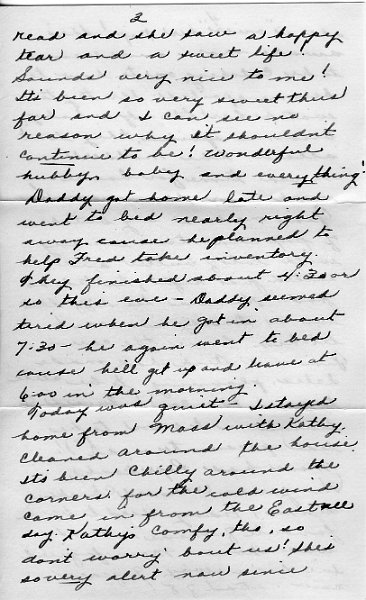 2
read and she saw a happy
tear and a sweet life!
Sounds very nice to me!
Its been so very sweet thus
far and I can see no
reason why it shouldn't
continue to be! Wonderful
hubby, baby and everything!
Daddy got home late and
went to bed nearly right
away cause he planned to
help Fred take inventory.
They finished about 4:30 or
so this eve - Daddy seemed
tired when he got in about
7:30 - he again went to bed
cause hell get up and leave at
6:00 in the morning
Today was quiet - I stayed
home from Mass with Kathy.
Cleaned around the house
Its been chilly around the
corners for the cold wind
came in from the East all
day. Kathy's comfy, tho, so
don't worry bout us! She's
so very alert now since